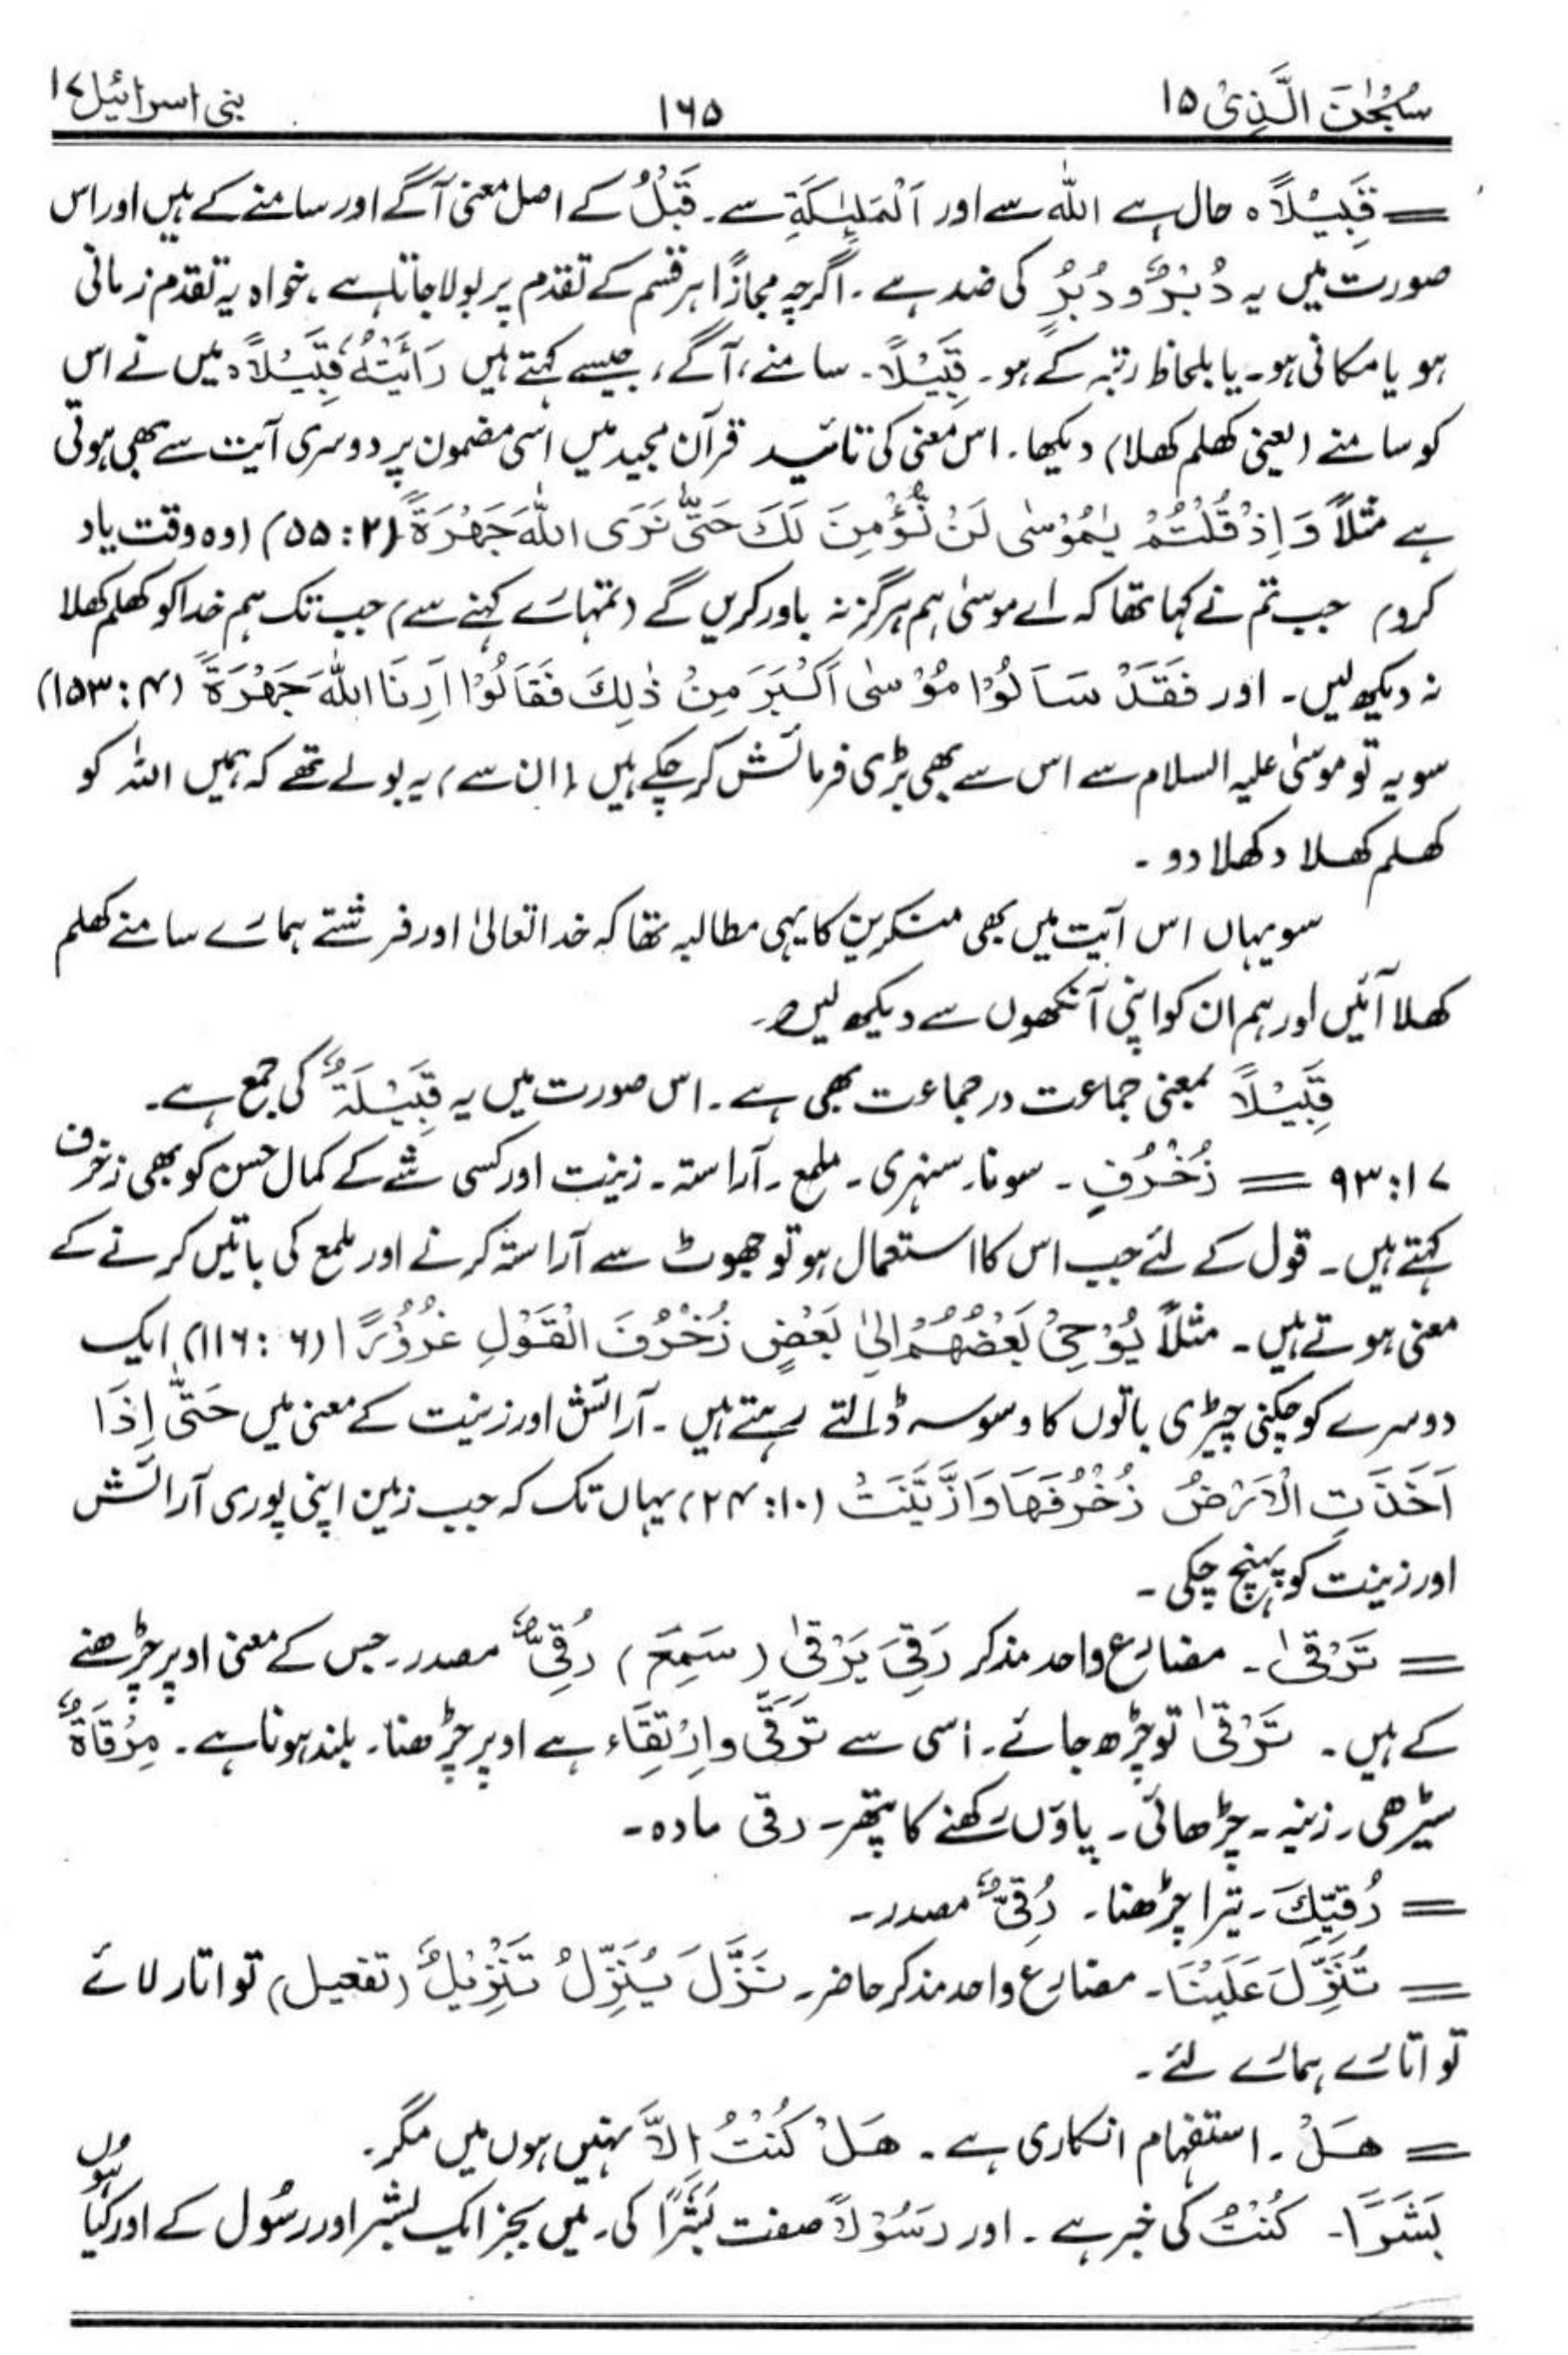 سُبْحٰنَ الَّذِیْ ۱۵
۱۶۵
بنی اسرائیل ۱۷
= قَبِیْلًا ہ حال ہے اللہ سے اور اَلْمَلٰٓئِکَةِ سے۔ قَبْلُ کے اصل معنی آگے اور سامنے کے ہیں اور اس
صورت میں یہ دُبْرٌ و دُبُرٌ کی ضد ہے۔ اگرچہ مجازًا ہر قسم کے تقدم پر بولا جاتا ہے، خواہ یہ تقدم زمانی
ہو یا مکانی ہو۔ یا بلحاظ رتبہ کے ہو۔ قَبِیْلًا۔ سامنے، آگے، جیسے کہتے ہیں رَاَیْتُہٗ قَبِیْلًا ہ میں نے اس
کو سامنے (یعنی کھلم کھلا) دیکھا۔ اس معنی کی تائید قرآن مجید میں اسی مضمون پر دوسری آیت سے بھی ہوتی
ہے مثلاً وَ اِذْ قُلْتُمْ یٰمُوْسٰی لَنْ نُّؤْمِنَ لَکَ حَتّٰی نَرَی اللّٰہَ جَھْرَةً (۵۵:۲) (وہ وقت یاد
کرو) جب تم نے کہا تھا کہ اے موسیٰ ہم ہرگز نہ باور کریں گے (تمہارے کہنے سے) جب تک ہم خدا کو کھلم کھلا
نہ دیکھ لیں۔ اور فَقَدْ سَاَلُوْا مُوْسٰی اَکْبَرَ مِنْ ذٰلِکَ فَقَالُوْا اَرِنَا اللّٰہَ جَھْرَةً (۱۵۳:۴)
سو یہ تو موسیٰ علیہ السلام سے اس سے بھی بڑی فرمائش کر چکے ہیں (ان سے) یہ بولے تھے کہ ہمیں اللہ کو
کھلم کھلا دکھلا دو۔
سو یہاں اس آیت میں بھی منکرین کا یہی مطالبہ تھا کہ خدا تعالیٰ اور فرشتے ہمارے سامنے کھلم
کھلا آئیں اور ہم ان کو اپنی آنکھوں سے دیکھ لیں۔
قَبِیْلًا بمعنی جماعت در جماعت بھی ہے۔ اس صورت میں یہ قَبِیْلَةٌ کی جمع ہے۔
۹۳:۱۷ = زُخْرُفٍ۔ سونا۔ سنہری۔ ملمع۔ آراستہ۔ زینت اور کسی شے کے کمال حسن کو بھی زخرف
کہتے ہیں۔ قول کے لئے جب اس کا استعمال ہو تو جھوٹ سے آراستہ کرنے اور ملمع کی باتیں کرنے کے
معنی ہوتے ہیں۔ مثلاً یُوْحِیْ بَعْضُھُمْ اِلٰی بَعْضٍ زُخْرُفَ الْقَوْلِ غُرُوْرًا (۱۱۶:۶) ایک
دوسرے کو چکنی چپڑی باتوں کا وسوسہ ڈالتے رہتے ہیں۔ آرائش اور زینت کے معنی میں حَتّٰی اِذَا
اَخَذَتِ الْاَرْضُ زُخْرُفَھَا وَازَّیَّنَتْ (۲۴:۱۰) یہاں تک کہ جب زمین اپنی پوری آرائش
اور زینت کو پہنچ چکی۔
= تَرْقٰی۔ مضارع واحد مذکر رَقِیَ یَرْقٰی (سَمِعَ) رُقِیٌّ مصدر۔ جس کے معنی اوپر چڑھنے
کے ہیں۔ تَرْقٰی تو چڑھ جائے۔ اسی سے تَرَقّٰی و اِرْتِقَاء ہے اوپر چڑھنا۔ بلند ہونا ہے۔ مِرْقَاةٌ
سیڑھی۔ زینہ۔ چڑھائی۔ پاؤں رکھنے کا پتھر۔ رقی مادہ۔
= رُقِیِّکَ۔ تیرا چڑھنا۔ رُقِیٌّ مصدر۔
= تُنَزِّلَ عَلَیْنَا۔ مضارع واحد مذکر حاضر۔ نَزَّلَ یُنَزِّلُ تَنْزِیْلٌ (تفعیل) تو اتار لائے
تو اتارے ہمارے لئے۔
= ھَلْ۔ استفہام انکاری ہے۔ ھَلْ کُنْتُ اِلَّا نہیں ہوں میں مگر۔
بَشَرًا۔ کُنْتُ کی خبر ہے۔ اور رَسُوْلًا صفت بَشَرًا کی۔ میں بجز ایک بشر اور رسُول کے اور کیا ہوں